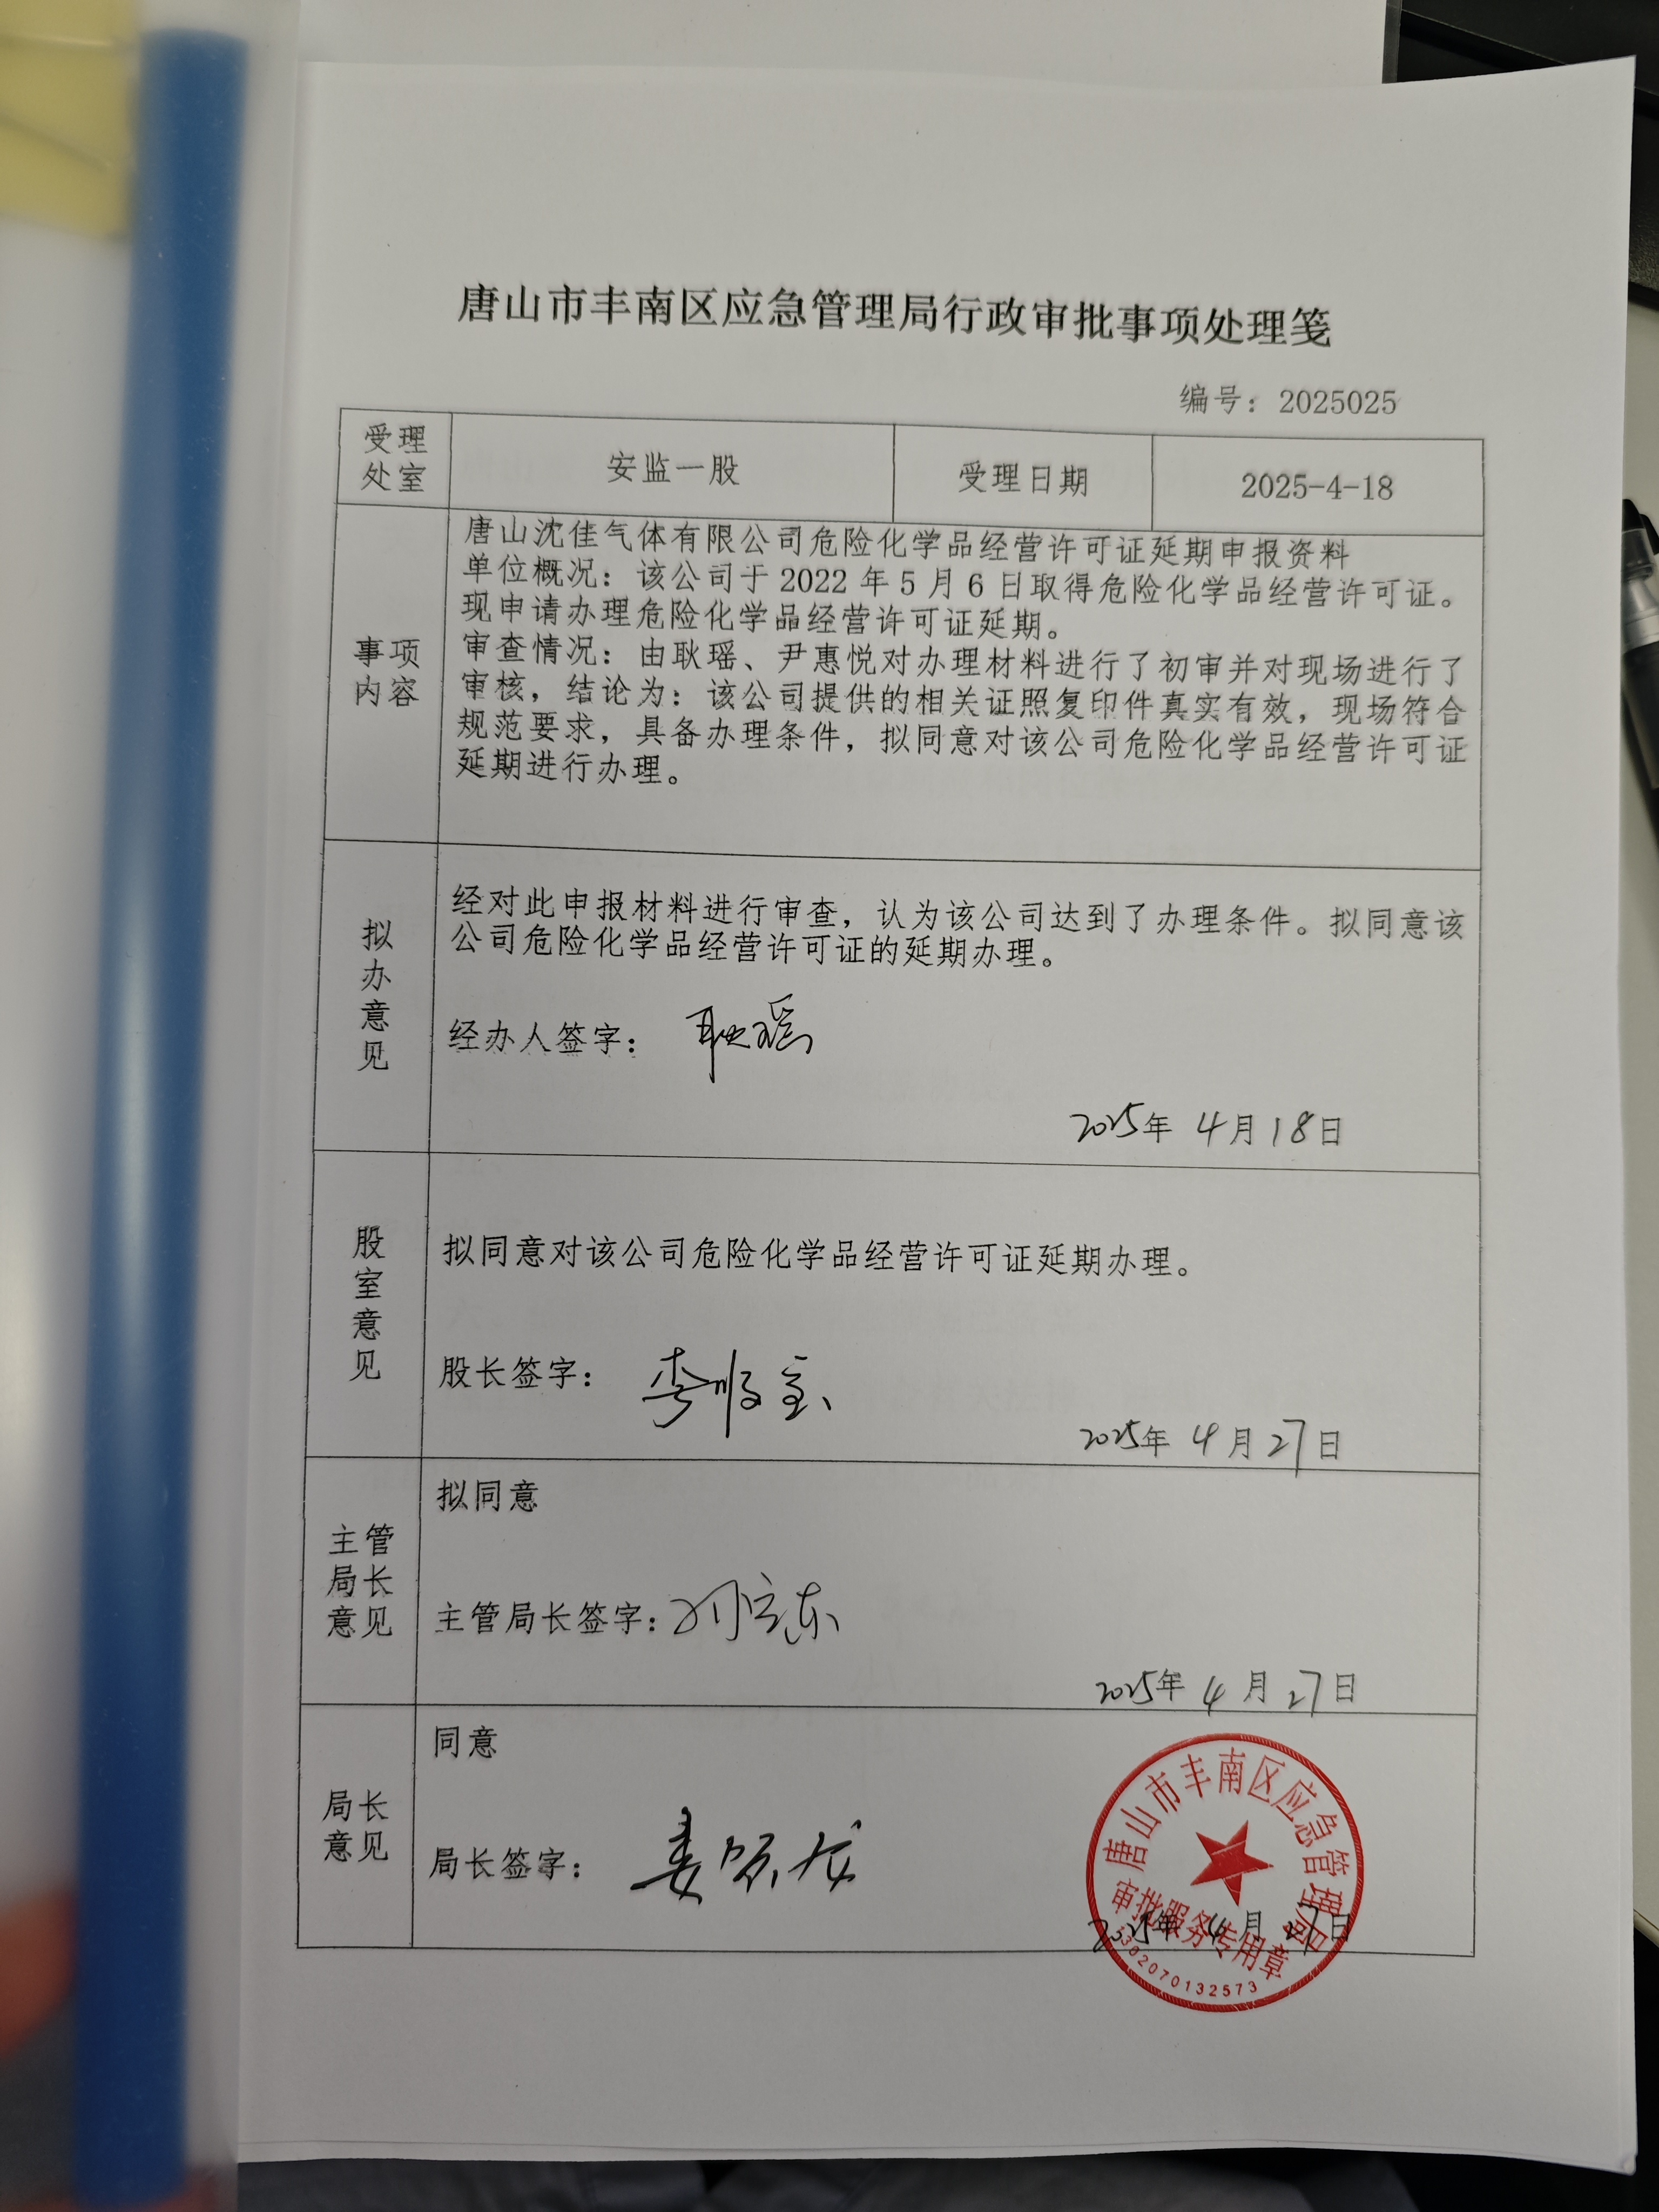 唐山市丰南区应急管理局行政审批事项处理笺
编号：2025025
受理
处室
安监一股
受理日期
2025-4-18
事项
内容
唐山沈佳气体有限公司危险化学品经营许可证延期申报资料
单位概况：该公司于 2022 年 5 月 6 日取得危险化学品经营许可证。
现申请办理危险化学品经营许可证延期。
审查情况：由耿瑶、尹惠悦对办理材料进行了初审并对现场进行了
审核，结论为：该公司提供的相关证照复印件真实有效，现场符合
规范要求，具备办理条件，拟同意对该公司危险化学品经营许可证
延期进行办理。
拟
办
意
见
经对此申报材料进行审查，认为该公司达到了办理条件。拟同意该
公司危险化学品经营许可证的延期办理。
经办人签字：耿瑶
2025年 4月18日
股
室
意
见
拟同意对该公司危险化学品经营许可证延期办理。
股长签字：
2025年 4月27日
主管
局长
意见
拟同意
主管局长签字：
2025年 4月27日
局长
意见
同意
局长签字：
2025年 4月27日
唐山市丰南区应急管理局
审批服务专用章
1302070132573